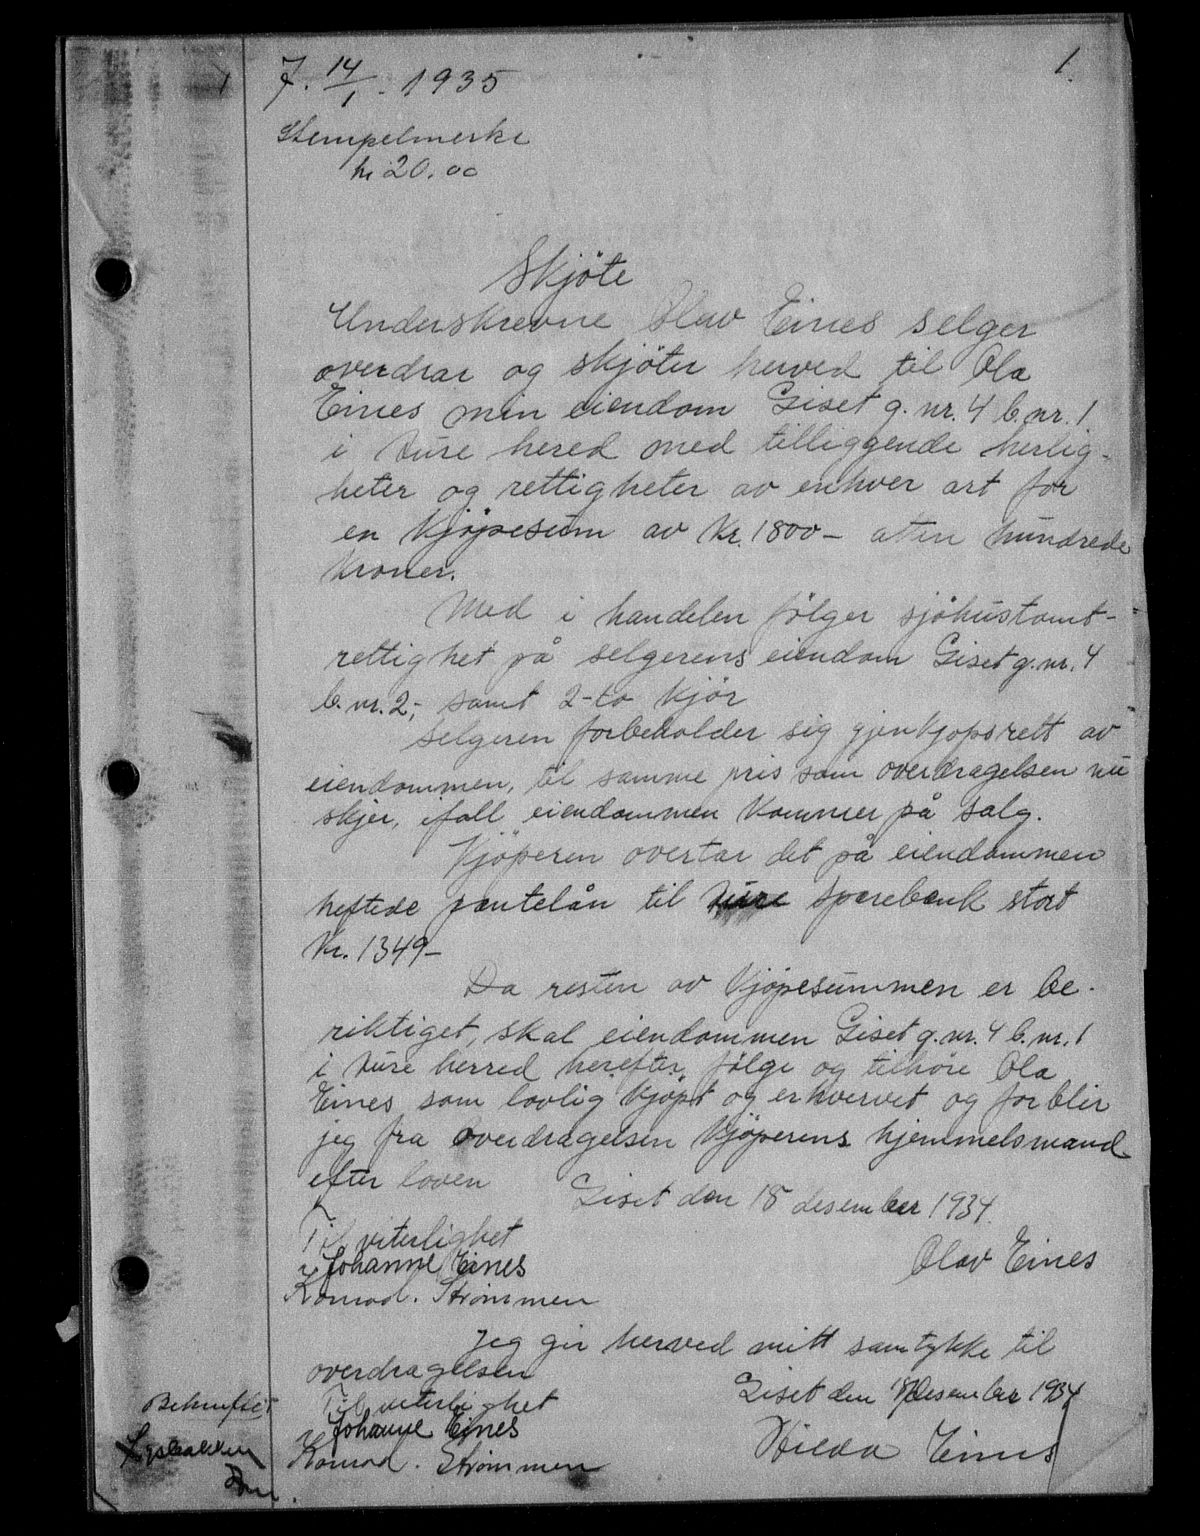 1.
J. 14/1. 1935
Stempelmerke
kr 20.00
Skjöte
Underskrevne Olav Eines selger
overdrar og skjöter herved til Ola
Eines min eiendom Giset g. nr. 4 b. nr. 1.
i Ture hered med tilliggende herlig-
heter og rettigheter av enhver art for
en kjöpesum av kr. 1800- atten hundrede
kroner.
Med i handelen fölger sjöhustomt-
rettighet på selgerens eiendom Giset g. nr. 4
b. nr. 2,- samt 2-to kjör
Selgeren forbeholder sig gjenkjopsrett av
eiendommen, til samme pris som overdragelsen nu
skjer, ifall eiendommen kommer på salg.
Kjöperen overtar det på eiendommen
heftede pantelån til Ture Sparebank stort
Kr. 1349-
Da resten av kjöpesummen er be-
riktiget, skal eiendommen Giset g. nr. 4 b. nr. 1
i Ture herred herefter fölge og tilhöre Ola
Eines som lovlig kjöpt og erhvervet og forblir
jeg fra overdragelsen kjöperens hjemmelsmand
efter loven
Giset den 18 desember 1934.
Til viterlighet
Johanne Eines
Olav Eines
Konrad. Strømmen
Jeg gir herved mitt samtykke til
overdragelsen
Giset den 18 desember 1934
Til viterlighet
Johanne Eines
Hilda Eines
Konrad. Strømmen
Bekreftet